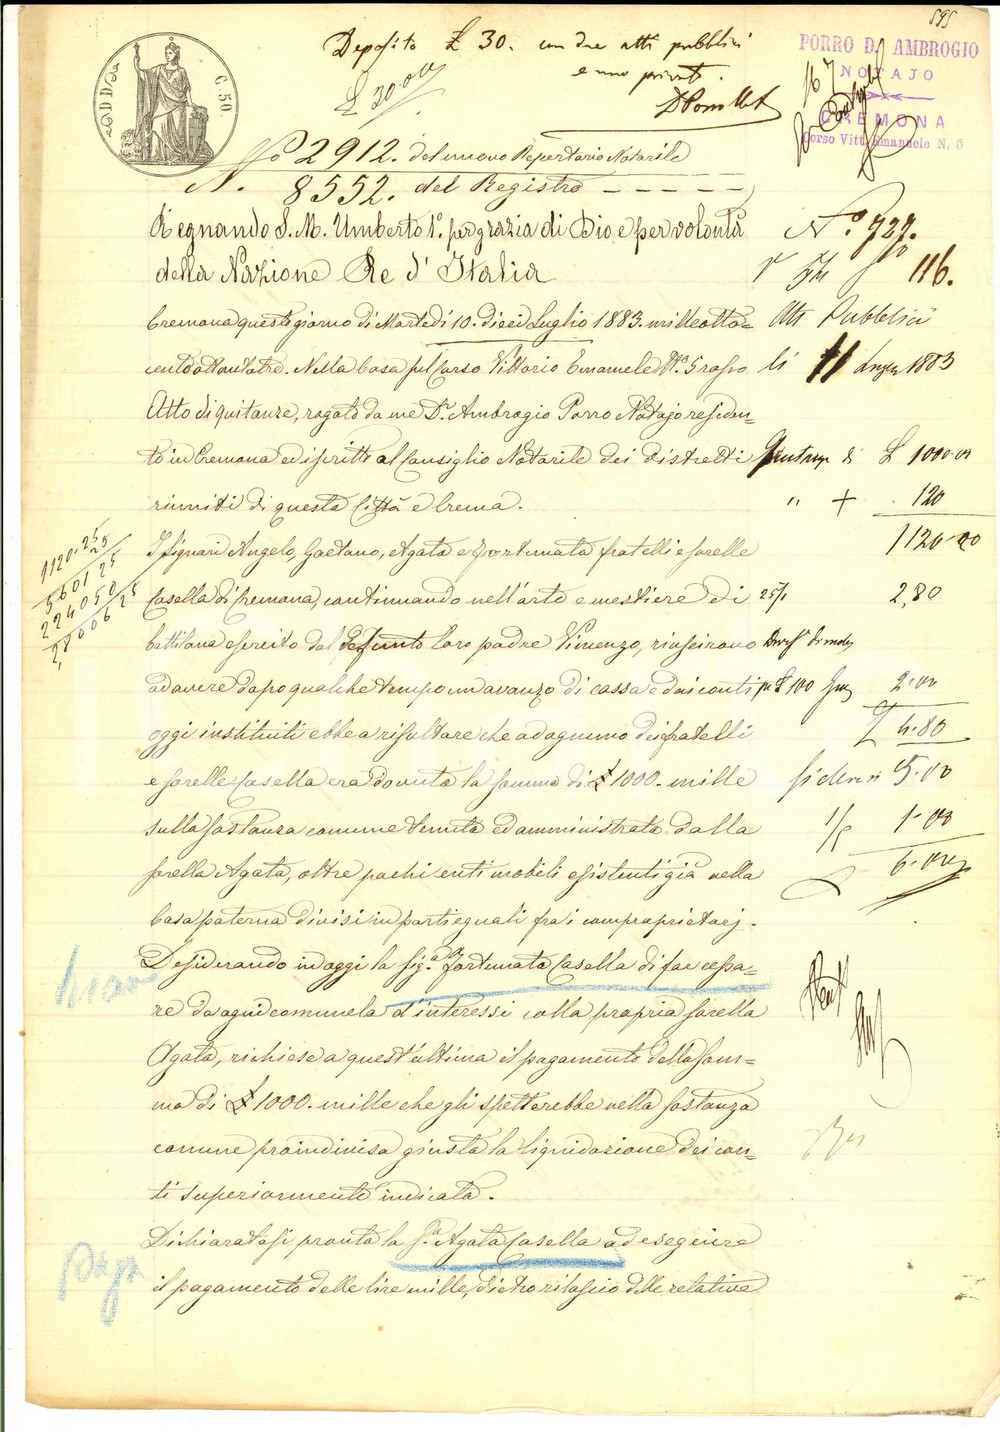 595
Deposito £ 30. con due atti pubblici
e uno privato.
£ 30.00
C. 50.
PORRO D. AMBROGIO
NOTAJO
CREMONA
Corso Vitt. Emanuele N. 5
No 2912. del nuovo Repertorio Notarile
N. 8552. del Registro
Regnando S. M. Umberto 1.° per grazia di Dio e per volontà
della Nazione Re d'Italia
N.° 727.
116.
Cremona questo giorno di Martedì 10. dieci Luglio 1883. mille otto=
Atti Pubblici
cento ottantatre. Nella Casa sul Corso Vittorio Emanuele N.° 5 rosso
li 11 Luglio 1883
Atto di quitanze, rogato da me D.r Ambrogio Porro Notajo residen=
te in Cremona ed iscritto al Consiglio Notarile dei distretti
£ 1000.00
riuniti di questa Città e Crema.
" + 120
1120.00
I Signori Angelo, Gaetano, Agata e Fortunata fratelli e sorelle
Casella di Cremona, continuando nell'arte e mestiere di
2,80
battilana esercito dal defunto loro padre Vincenzo, riuscirono
ad avere dopo qualche tempo un avanzo di cassa e dai conti
£ 100 2.00
oggi instituiti ebbe a risultare che ad ognuno dei fratelli
£ 4.80
e sorelle Casella era dovuta la somma di £ 1000. mille
5.00
sulla sostanza comune tenuta ed amministrata dalla
1/5 1.00
sorella Agata, oltre pochi enti mobili esistenti già nella
6.00
Casa paterna divisi in parti eguali fra i comproprietarj.
Desiderando in oggi la Sig.a Fortunata Casella di far cessa=
re da ogni comunela d'interessi colla propria sorella
Agata, richiese a quest'ultima il pagamento della som=
ma di £ 1000. mille che gli spetterebbe nella sostanza
comune proindivisa giusta la liquidazione dei con=
ti superiormente indicata.
Dichiaratasi pronta la S.a Agata Casella ad eseguire
il pagamento delle lire mille, dietro rilascio delle relative
paga